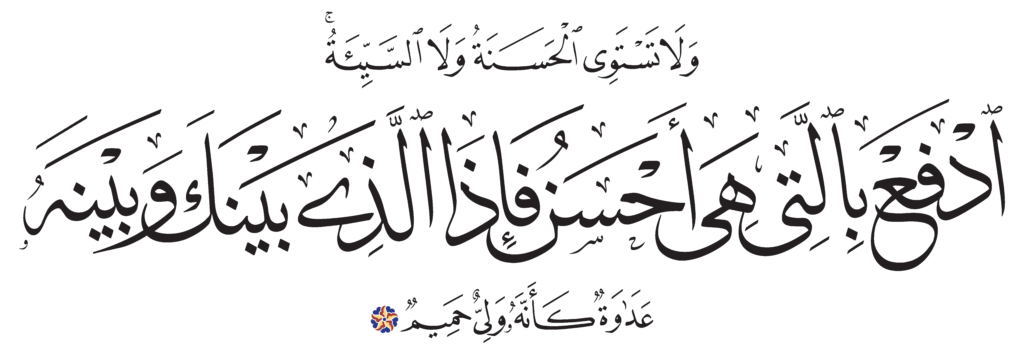 وَلَا تَسْتَوِى ٱلْحَسَنَةُ وَلَا ٱلسَّيِّئَةُ ۚ
ٱدْفَعْ بِٱلَّتِى هِىَ أَحْسَنُ فَإِذَا ٱلَّذِى بَيْنَكَ وَبَيْنَهُۥ
عَدَٰوَةٌ كَأَنَّهُۥ وَلِىٌّ حَمِيمٌ